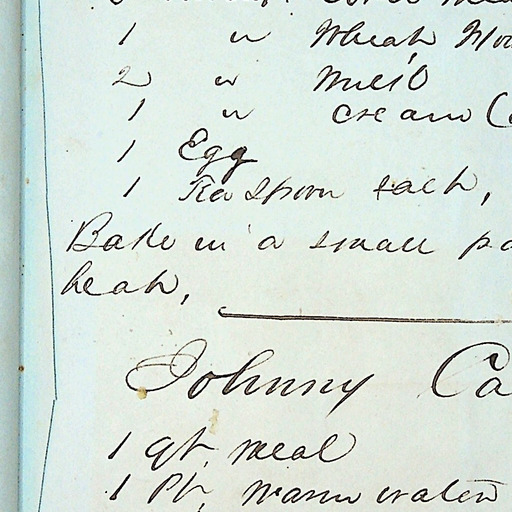 1 " Wheat Flou
2 " Milk
1 " cream
1 Egg
1 Tea Spoon salt,
Bake in a small pa
heat,
Johnny Ca
1 qt, meal
1 Pt, warm water